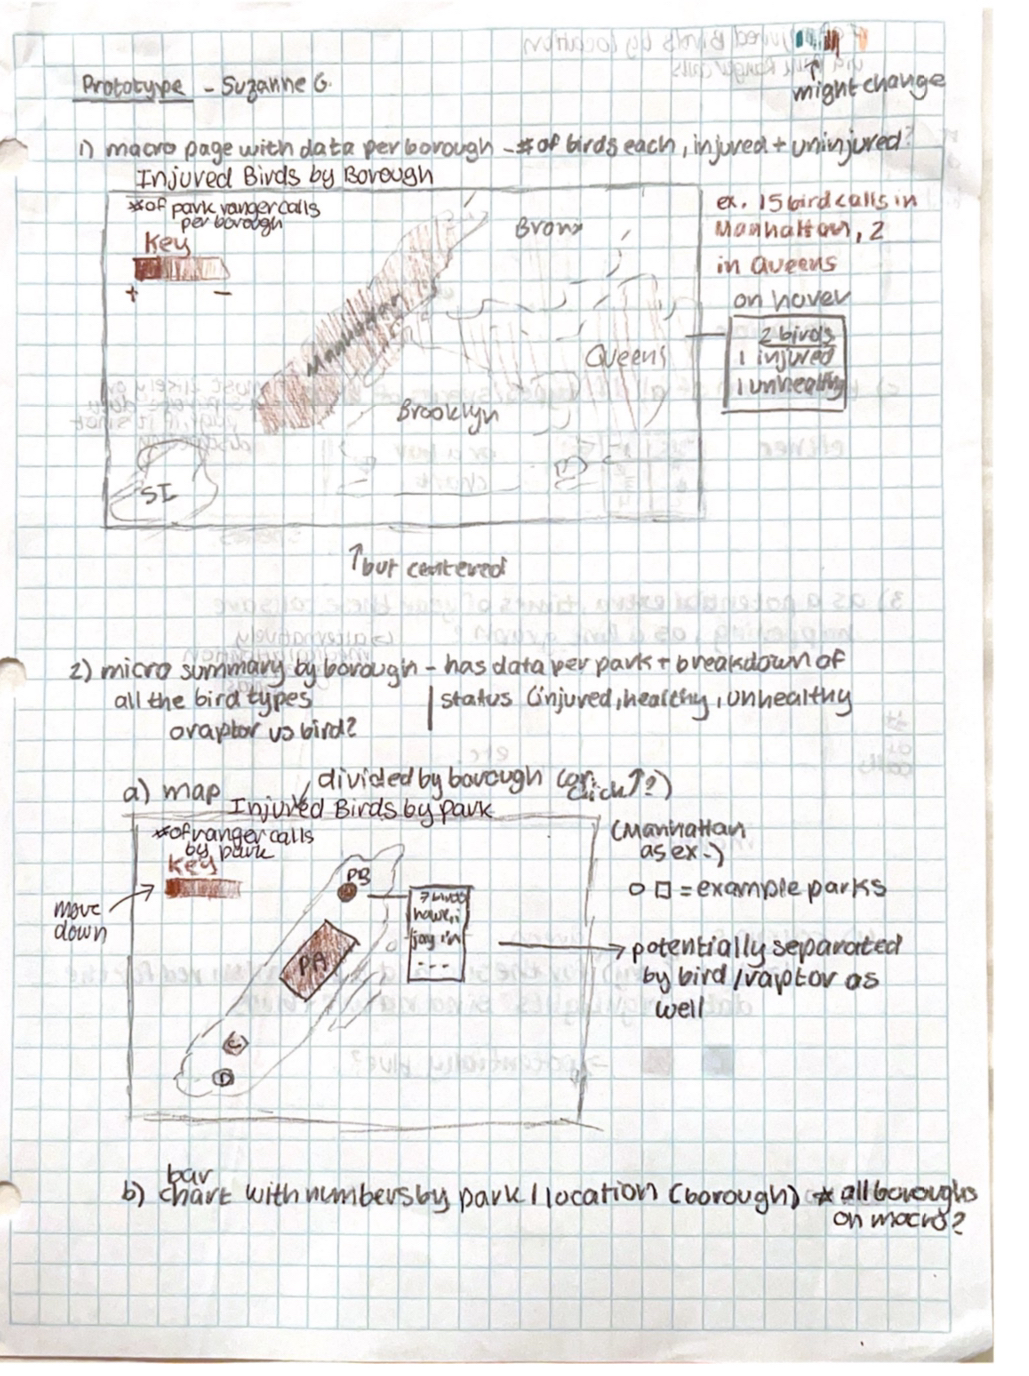 Prototype - Suzanne G.
might change
1) macro page with data per borough - # of birds each, injured + uninjured?
Injured Birds by Borough
# of park ranger calls
per borough
Key
+ -
Bronx
Manhattan
Queens
Brooklyn
SI
ex. 15 bird calls in
Manhattan, 2
in Queens
on hover
2 birds
1 injured
1 unhealthy
↑ but centered
2) micro summary by borough - has data per park + breakdown of
all the bird types | status (injured, healthy, unhealthy
o raptor vs bird?
a) map
divided by borough (or click ↑?)
Injured Birds by park
# of ranger calls
by park
Key
move
down
PB
PA
C
D
7 birds
(Manhattan
as ex.)
○ □ = example parks
→ potentially separated
by bird / raptor as
well
bar
b) chart with numbers by park / location (borough) * all boroughs
on macro?